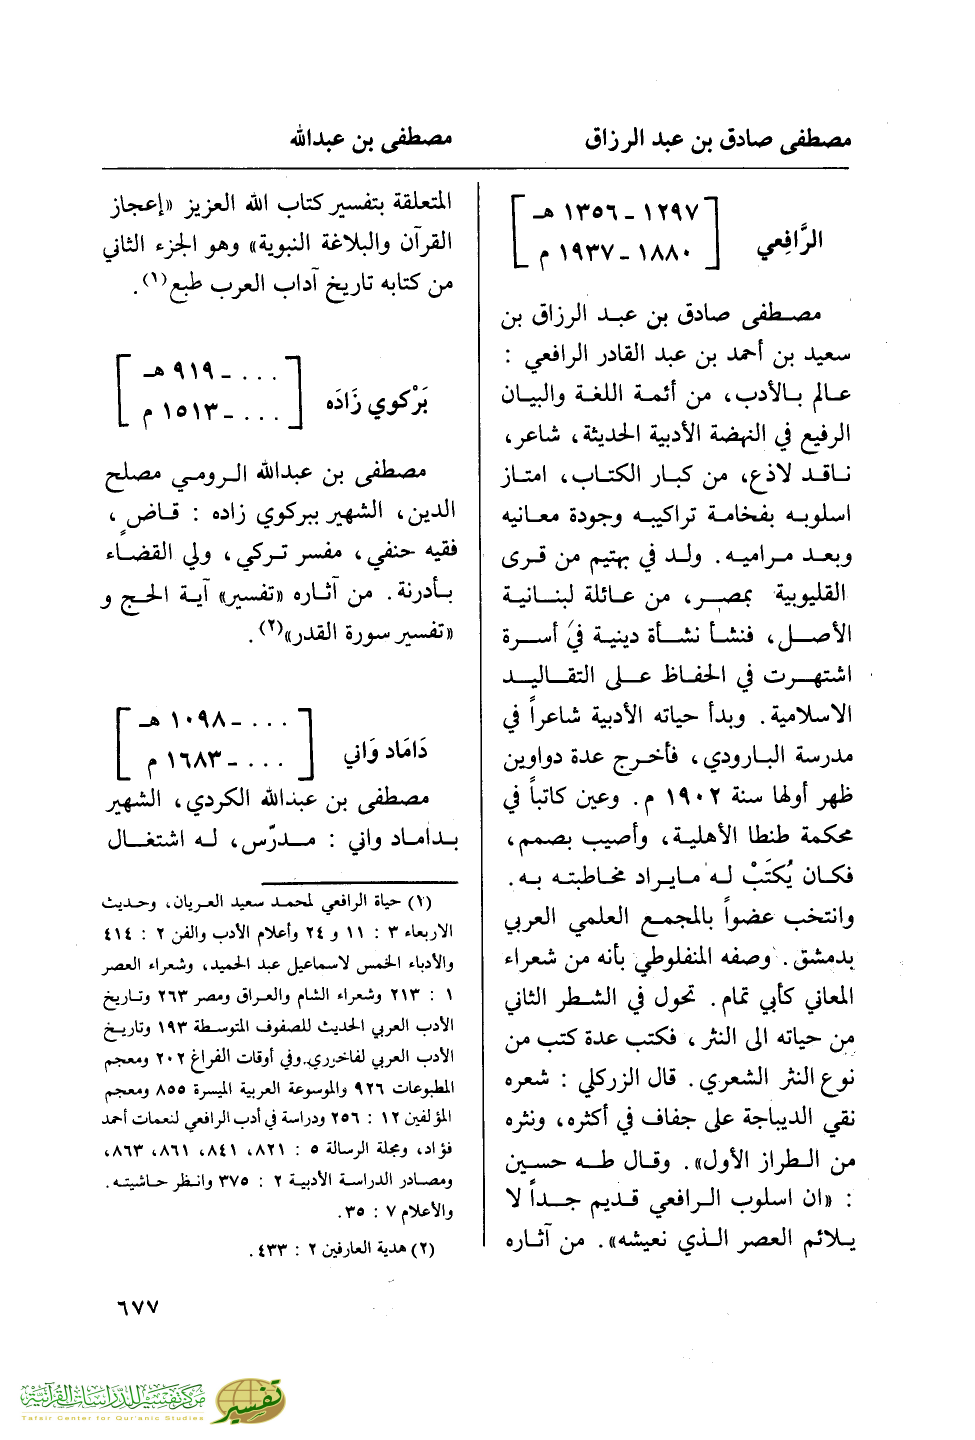 مصطفى صادق بن عبد الرزاق
مصطفى بن عبدالله
الرَّافِعي
[١٢٩٧ - ١٣٥٦ هـ
١٨٨٠ - ١٩٣٧ م]
مصطفى صادق بن عبد الرزاق بن
سعيد بن أحمد بن عبد القادر الرافعي :
عالم بالأدب، من أئمة اللغة والبيان
الرفيع في النهضة الأدبية الحديثة، شاعر،
ناقد لاذع، من كبار الكتاب، امتاز
اسلوبه بفخامة تراكيبه وجودة معانيه
وبعد مراميه. ولد في بهتيم من قرى
القليوبية بمصر، من عائلة لبنانية
الأصل، فنشأ نشأة دينية في أسرة
اشتهرت في الحفاظ على التقاليد
الاسلامية. وبدأ حياته الأدبية شاعراً في
مدرسة البارودي، فأخرج عدة دواوين
ظهر أولها سنة ١٩٠٢ م. وعين كاتباً في
محكمة طنطا الأهلية، وأصيب بصمم،
فكان يُكتَبْ له مايراد مخاطبته به.
وانتخب عضواً بالمجمع العلمي العربي
بدمشق. وصفه المنفلوطي بأنه من شعراء
المعاني كأبي تمام. تحول في الشطر الثاني
من حياته الى النثر، فكتب عدة كتب من
نوع النثر الشعري. قال الزركلي : شعره
نقي الديباجة على جفاف في أكثره، ونثره
من الطراز الأول». وقال طه حسين
: «ان اسلوب الرافعي قديم جداً لا
يلائم العصر الذي نعيشه». من آثاره
المتعلقة بتفسير كتاب الله العزيز «إعجاز
القرآن والبلاغة النبوية» وهو الجزء الثاني
من كتابه تاريخ آداب العرب طبع(١).
بَرْكوي زَادَه
[... - ٩١٩ هـ
... - ١٥١٣ م]
مصطفى بن عبدالله الرومي مصلح
الدين، الشهير ببركوي زاده : قاضٍ،
فقيه حنفي، مفسر تركي، ولي القضاء
بأدرنة. من آثاره «تفسير» آية الحج و
«تفسير سورة القدر»(٢).
دَامَاد وَاني
[... - ١٠٩٨ هـ
... - ١٦٨٣ م]
مصطفى بن عبدالله الكردي، الشهير
بداماد واني : مدرّس، له اشتغال
(١) حياة الرافعي لمحمد سعيد العريان، وحديث
الاربعاء ٣ : ١١ و ٢٤ وأعلام الأدب والفن ٢ : ٤١٤
والأدباء الخمس لاسماعيل عبد الحميد، وشعراء العصر
١ : ٢١٣ وشعراء الشام والعراق ومصر ٢٦٣ وتاريخ
الأدب العربي الحديث للصفوف المتوسطة ١٩٣ وتاريخ
الأدب العربي لفاخوري وفي أوقات الفراغ ٢٠٢ ومعجم
المطبوعات ٩٢٦ والموسوعة العربية الميسرة ٨٥٥ ومعجم
المؤلفين ١٢ : ٢٥٦ ودراسة في أدب الرافعي لنعمات أحمد
فؤاد، ومجلة الرسالة ٥ : ٨٢١، ٨٤١، ٨٦١، ٨٦٣،
ومصادر الدراسة الأدبية ٢ : ٣٧٥ وانظر حاشيته.
والأعلام ٧ : ٣٥.
(٢) هدية العارفين ٢ : ٤٣٣.
٦٧٧
مركز تفسير للدراسات القرآنية
Tafsir Center for Qur'anic Studies
تفسير